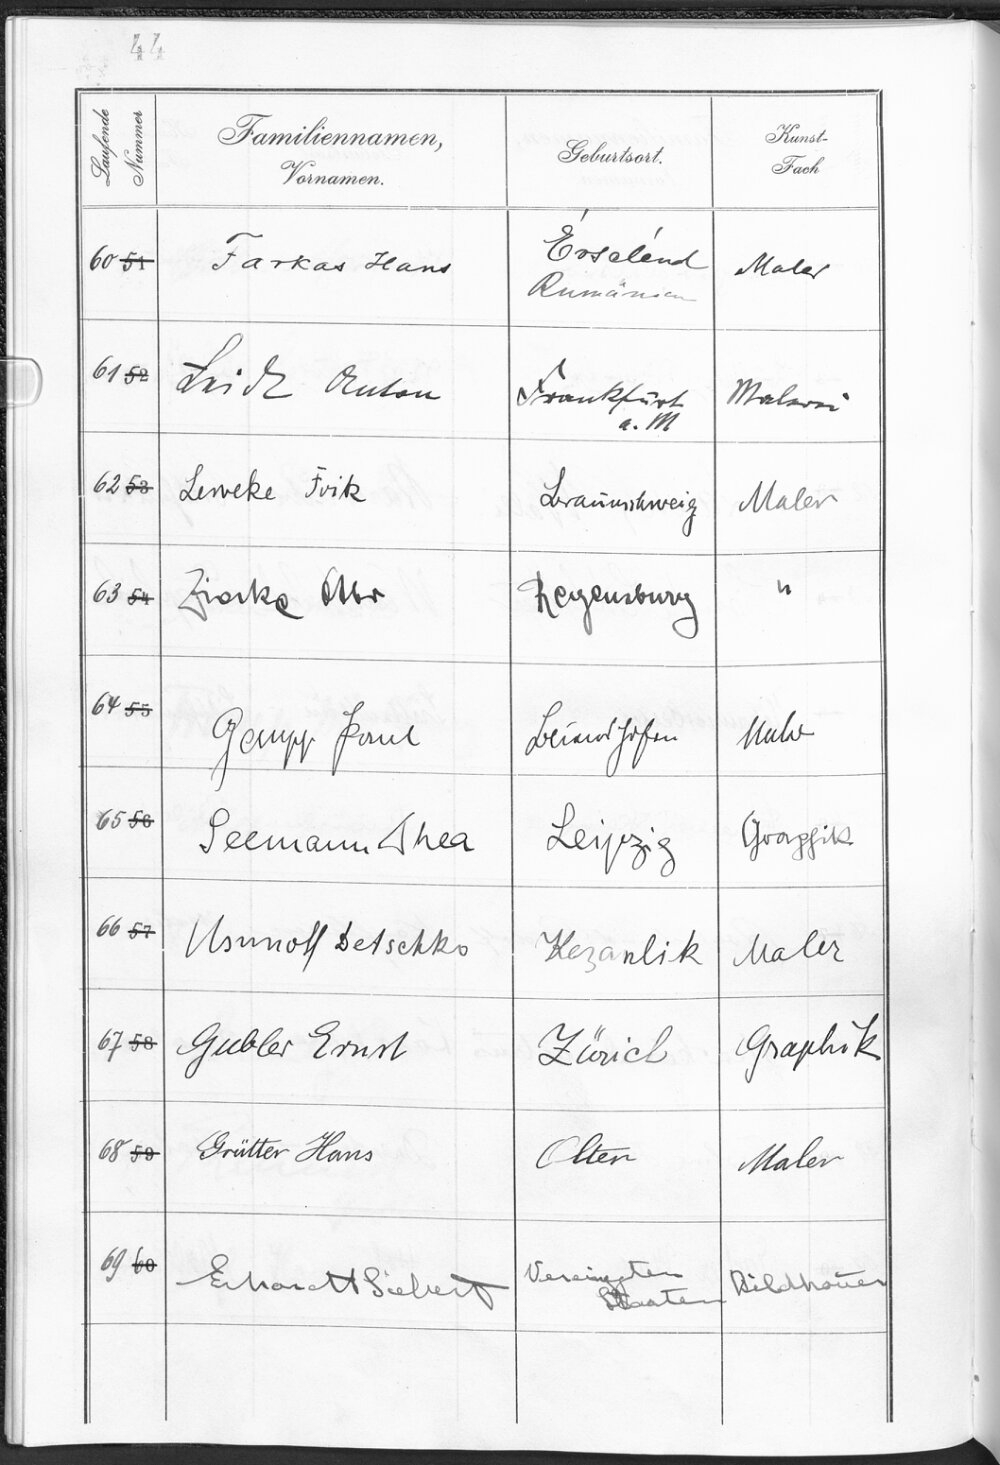 44
Laufende Nummer
Familiennamen,
Vornamen.
Geburtsort.
Kunst-
Fach
60 51 Farkas Hans Érselénd Maler
Rumänien
61 52 Leidl Anton Frankfurt Malerei
a. M
62 53 Lerveke Frik Braunschweig Maler
63 54 Otto Regensburg "
64 55 Gampp Maler
65 56 Seemann Thea Leipzig Graphik
66 57 Usunoff Detschko Kezanlik Maler
67 58 Gubler Ernst Zürich Graphik
68 59 Grütter Hans Olten Maler
69 60 Erhardt Siebert Vereinigten Bildhauer
Staaten